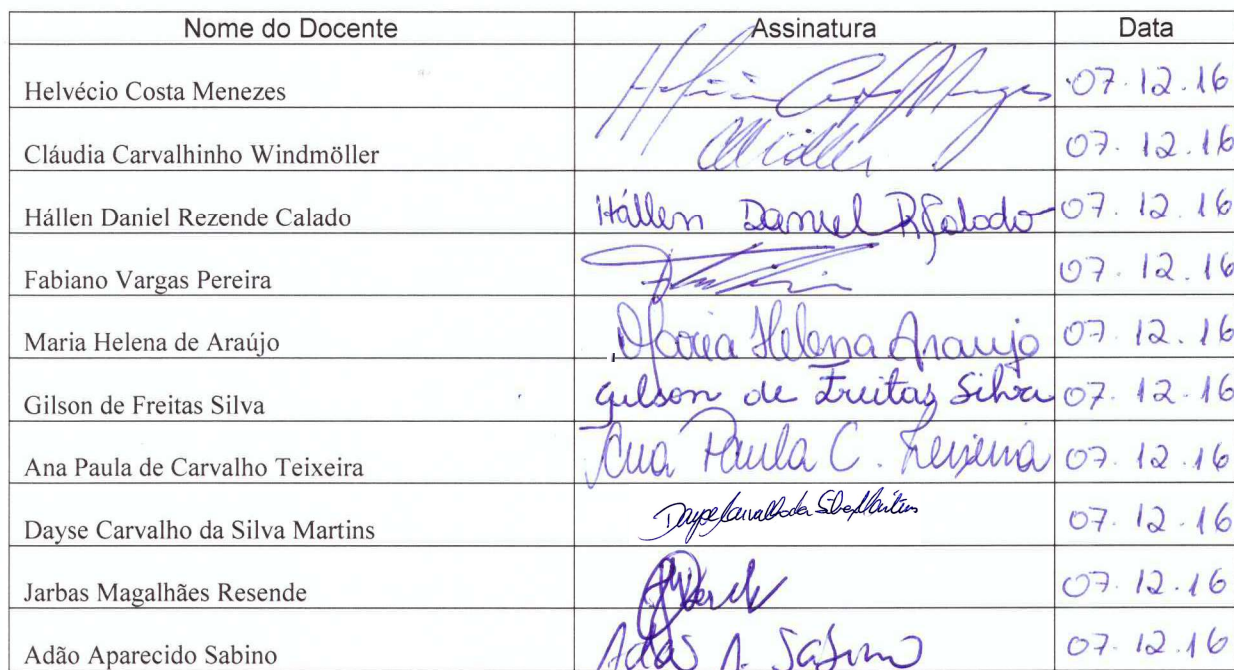 Nome do Docente Assinatura Data
Helvécio Costa Menezes Helvécio Costa Menezes 07.12.16
Cláudia Carvalhinho Windmöller 07.12.16
Hállen Daniel Rezende Calado Hállen Daniel R Calado 07.12.16
Fabiano Vargas Pereira 07.12.16
Maria Helena de Araújo Maria Helena Araujo 07.12.16
Gilson de Freitas Silva Gilson de Freitas Silva 07.12.16
Ana Paula de Carvalho Teixeira Ana Paula C. Teixeira 07.12.16
Dayse Carvalho da Silva Martins Dayse Carvalho da Silva Martins 07.12.16
Jarbas Magalhães Resende 07.12.16
Adão Aparecido Sabino Adão A. Sabino 07.12.16